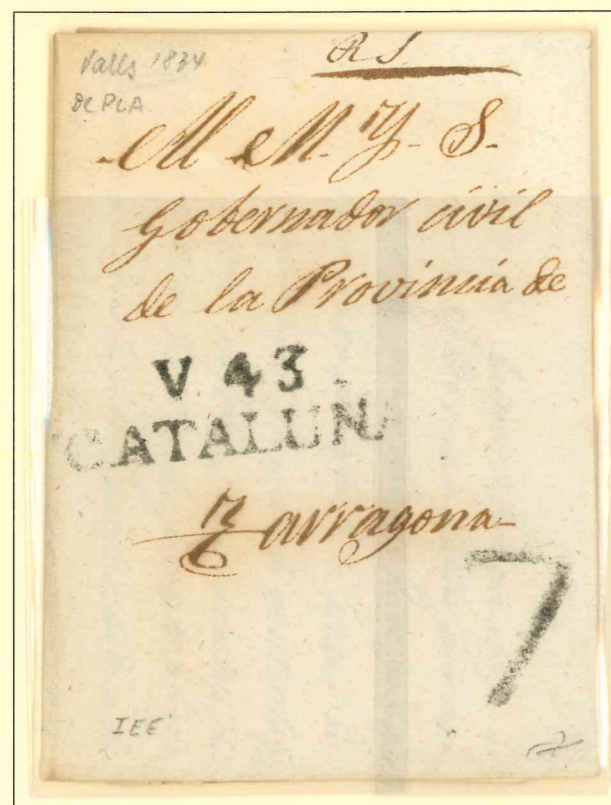 Valls 1834
DE PLA
R S
Al M. Y. S.
Gobernador civil
de la Provincia de
V 43
CATALUNA
Tarragona
7
IEE